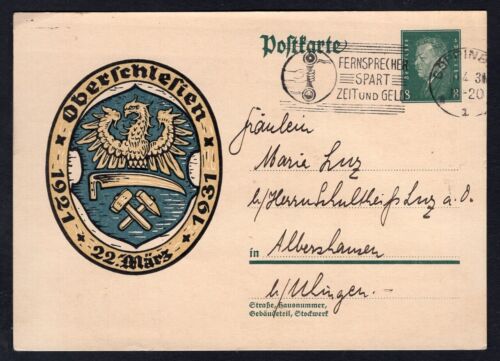 Postkarte
Oberschlesien
1921
1931
22. März
FERNSPRECHER
SPART
ZEIT UND GELD
8 8
Fräulein
Maria Luz
b/Herrn Schultheiß Luz a. D.
in Albershausen
b/Uhingen.
Straße, Hausnummer,
Gebäudeteil, Stockwerk